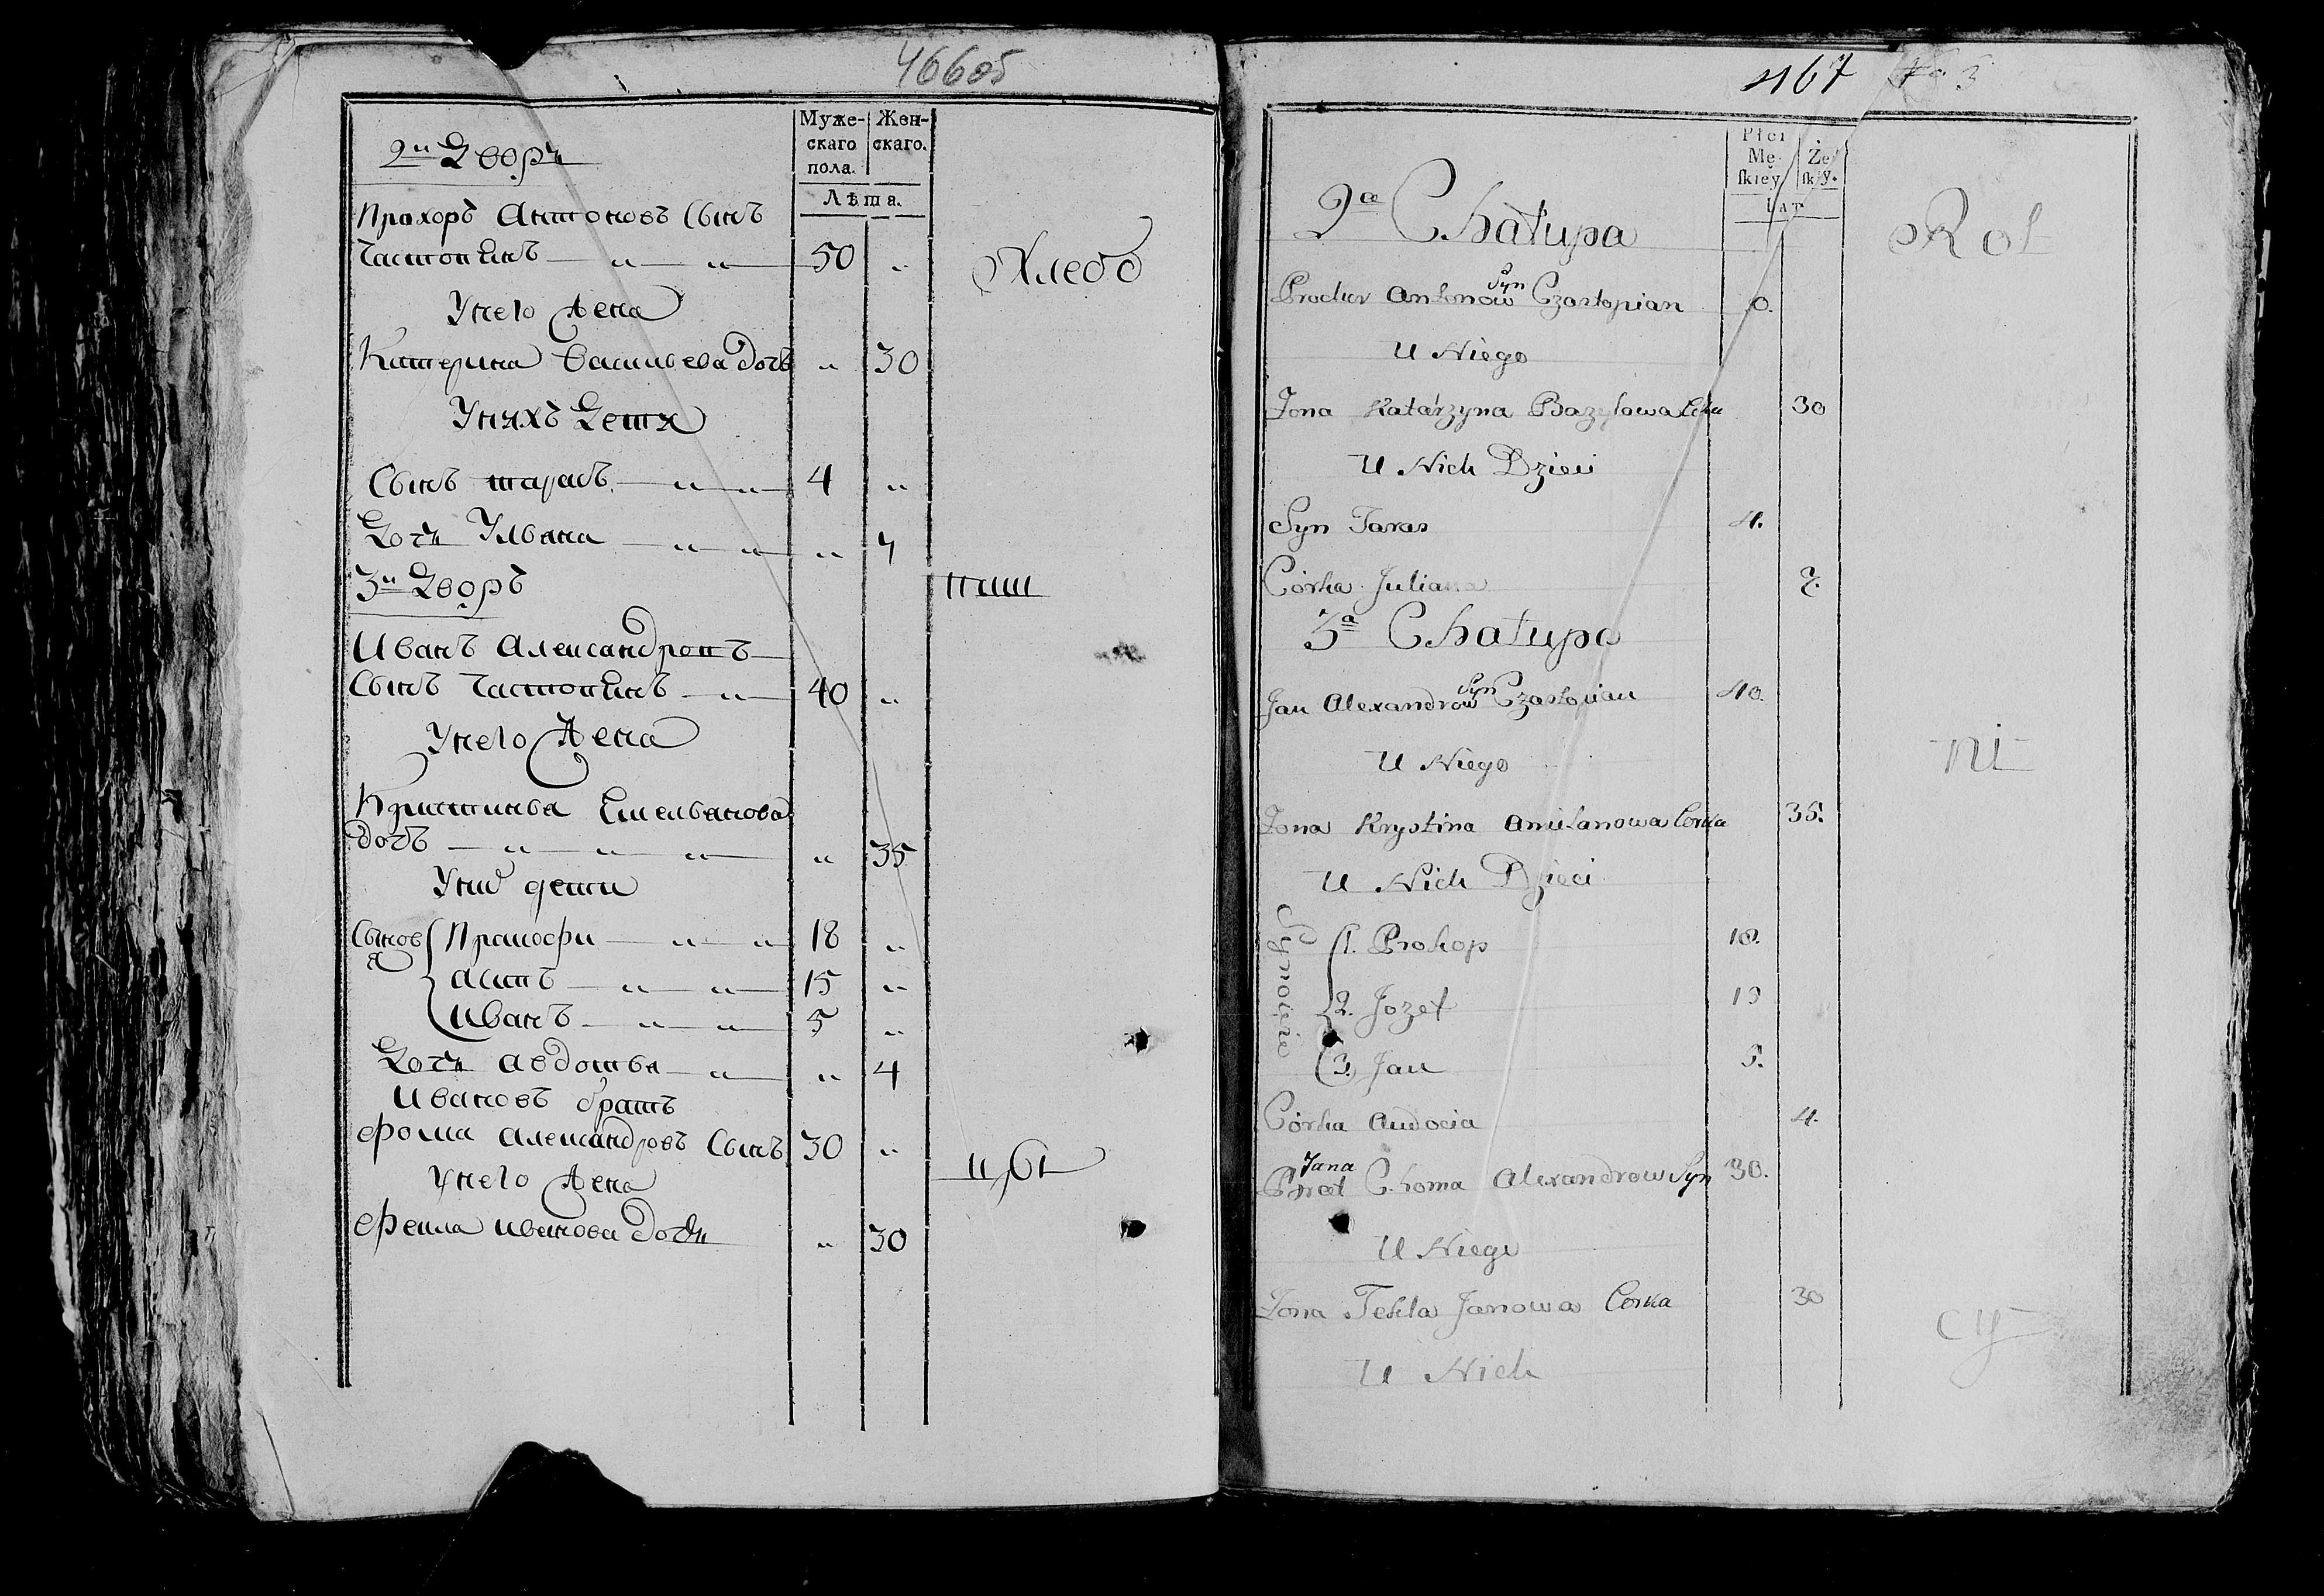 466об
Муже-
скаго
пола.
Жен-
скаго.
Лѣта.
2й Дворъ
Прохоръ Антоновъ Сынъ
Частопянъ 50
Хлебо
Унего Жена
Катерина Васильева Дочь 30
Унихъ Дети
Сынъ тарасъ 4
Дочь Ульяна 7
3й Дворъ
паш
Иванъ Александровъ
Сынъ Частопянъ 40
Унего Жена
Кристинья Емельянова
дочь 35
дети
Сынов
я
Пракофи 18
асипъ 15
Иванъ 5
Дочь авдотья 4
Ивановъ братъ
фома Александровъ Сынъ 30
Унего Жена
цы
фекла иванова Дочь 30
467
Płci
Mę-
ſkiey
Że
ſkiy.
Lat
2a Chałupa
Rol
Prochor Antonow Syn Czastopian 0.
U Niego
Zona Katarzyna Bazylowa Corka 30
U Nich Dzieci
Syn Taras 4.
Córka Juliana 7.
3a Chałupa
Jan Alexandrow Syn Czastopian 40.
U Niego
ni
Zona Krystina Amilanowa Corka 35.
U Nich Dzieci
Synowie
1. Prokop 18.
2. Jozef 15
3. Jan 5.
Córka Audocia 4.
Jana
Brat Choma Alexandrow Syn 30.
U Niego
Zona Tekla Janowa Corka 30
cy
U Nich